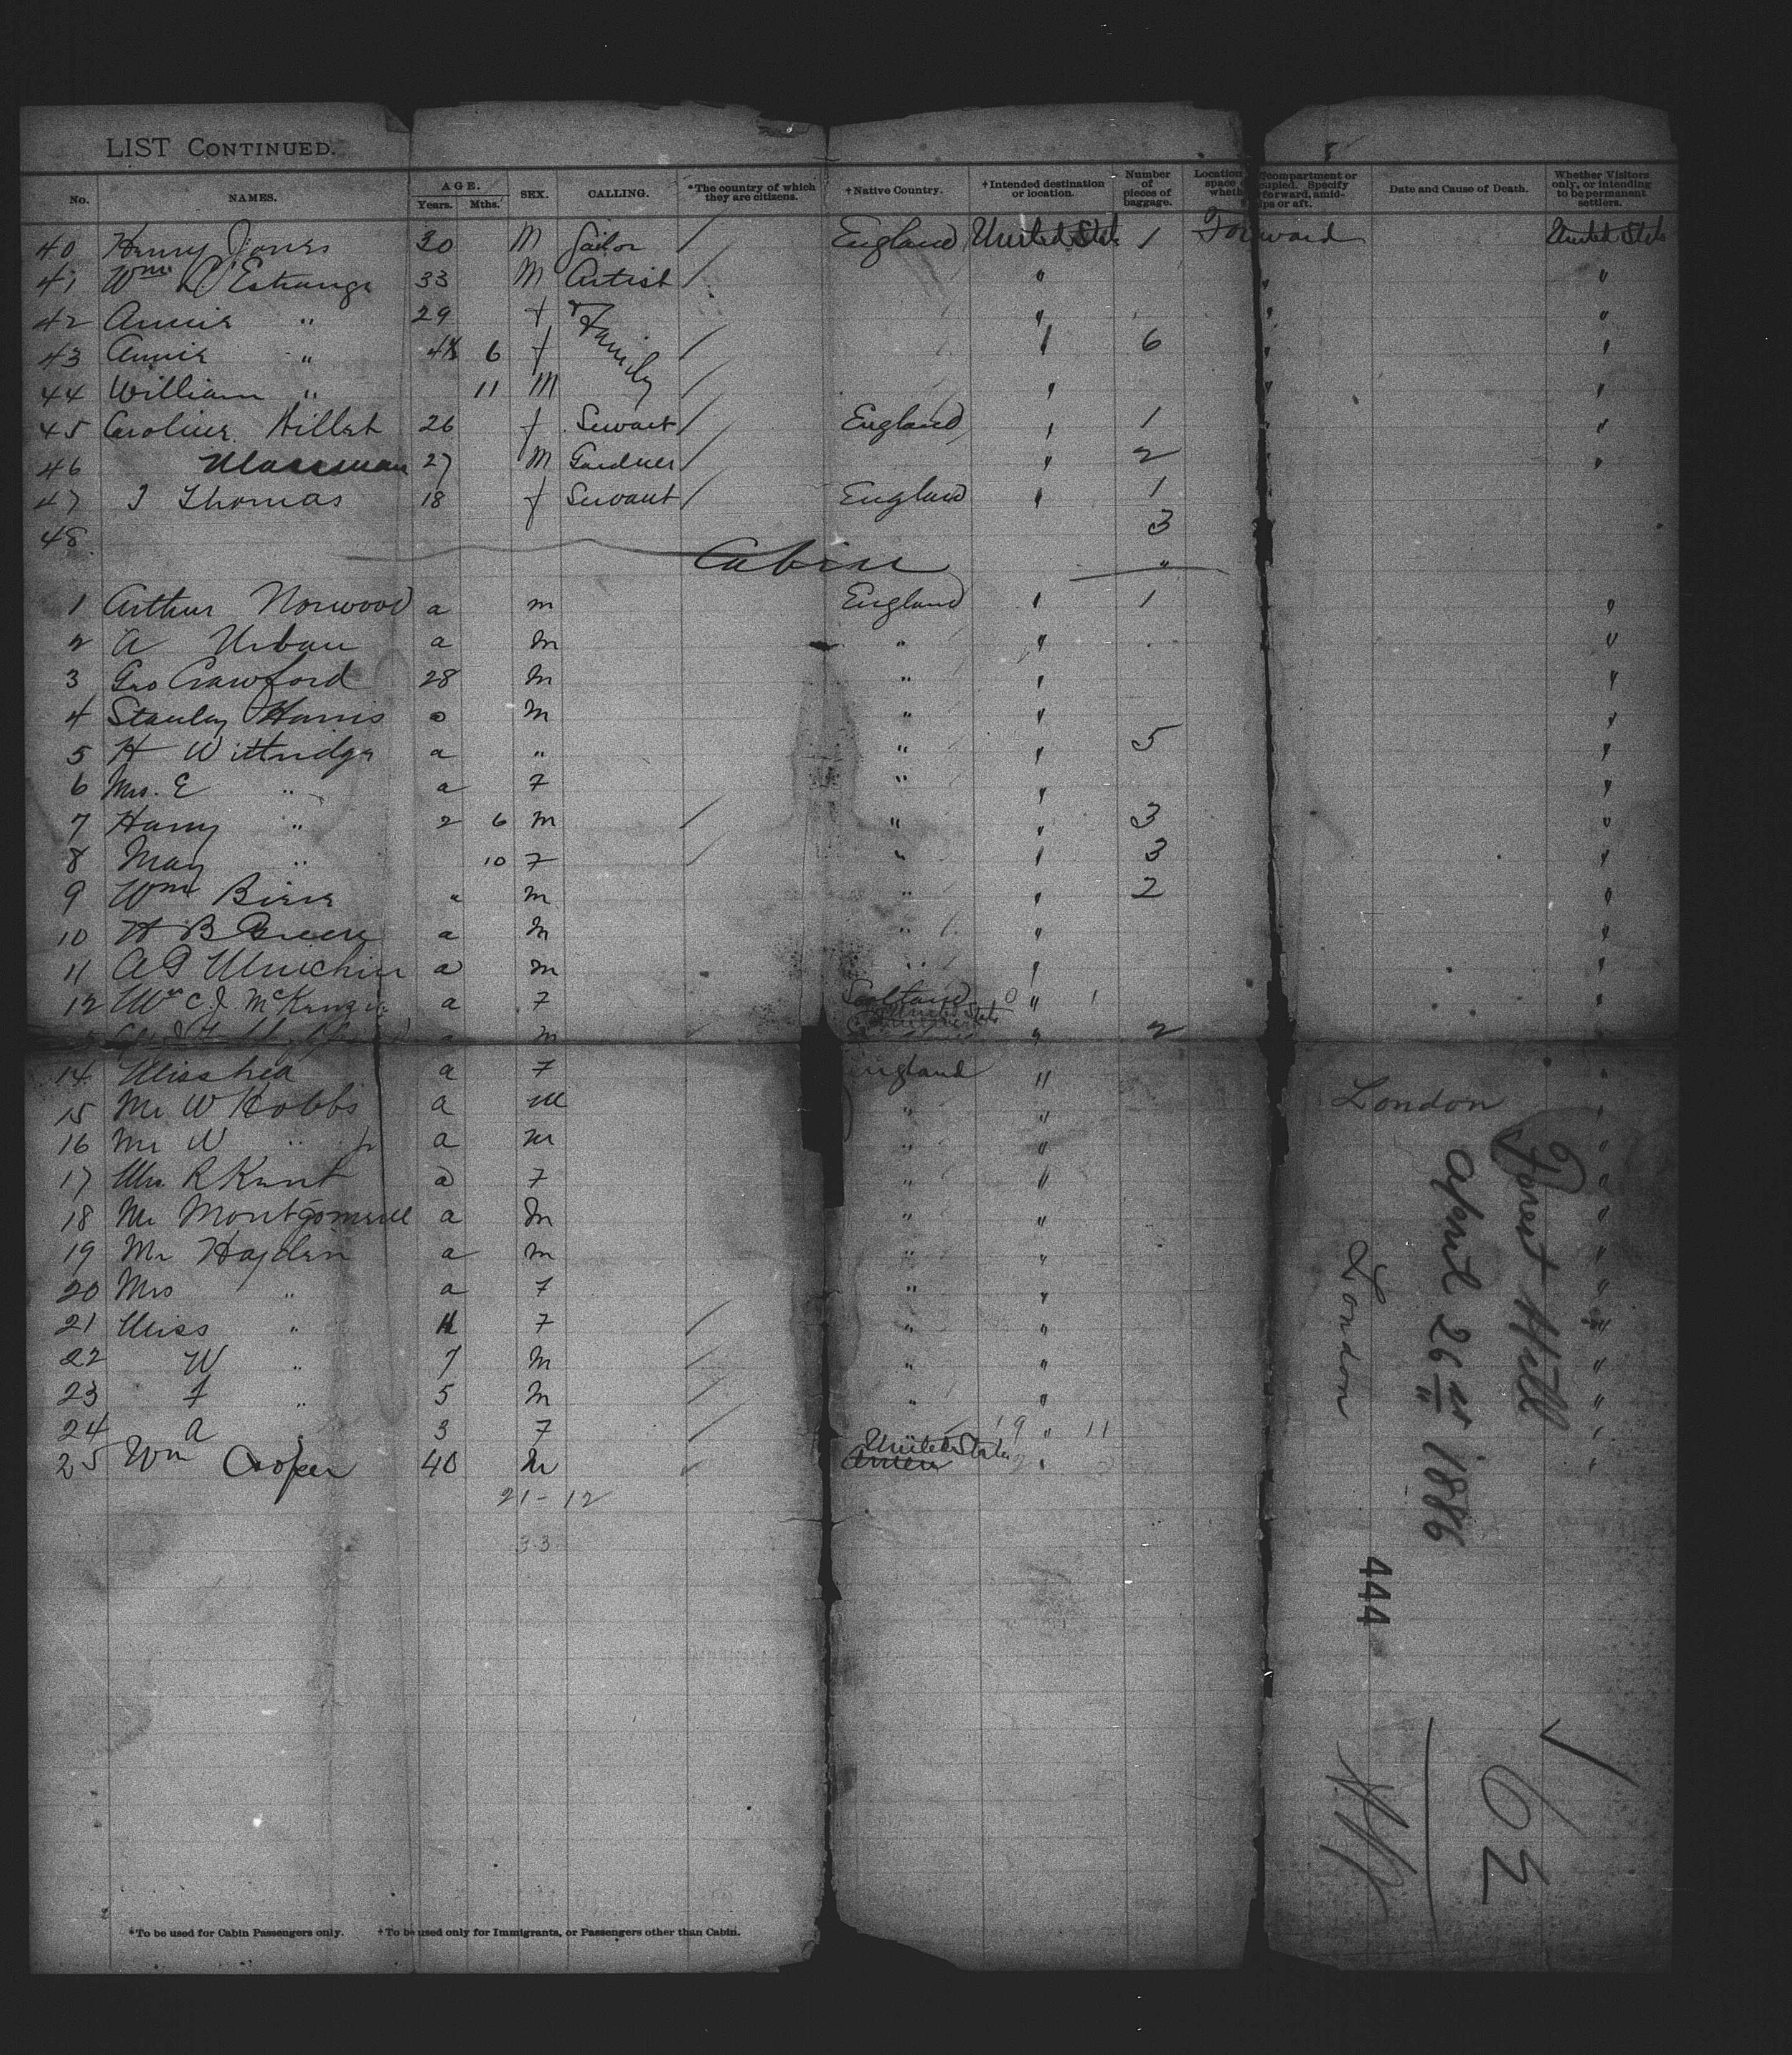 LIST CONTINUED.
No. NAMES. AGE. Years. Mths. SEX. CALLING. *The country of which they are citizens. †Native Country. †Intended destination or location. Number of pieces of baggage. Location space whether compartment or occupied. Specify forward, amidships or aft. Date and Cause of Death. Whether Visitors only, or intending to be permanent settlers.
40 Henry Jones 30 M Sailor / England United States 1 Forward United States
41 Wm L'Estrange 33 M Artist / " " "
42 Annie " 29 f Family " " "
43 Annie " 4 6 f / " 6 " "
44 William " 11 M / " " "
45 Caroline 26 f Servant / England " 1 " "
46 27 M Gardner / " 2 " "
47 J Thomas 18 f Servant / England " 1 "
48 3
Cabin "
1 Arthur Norwood a m England " 1 "
2 A Urban a m " " "
3 Geo Crawford 28 m " " "
4 Stanley Harris a m " " "
5 H Wittridge a " " " 5 "
6 Mrs. E " a F " " "
7 Harry " 2 6 m / " " 3 "
8 May " 10 F / " " 3 "
9 Wm a m " " 2 "
10 H B Green a m " " "
11 A G a m " " "
12 C J McKenzie a F Scotland " "
a m United States " 2
14 Miss a F England " "
15 Mr W Hobbs a m " " "
16 Mr W " Jr a m " " "
17 Mrs. R Kent a F " " "
18 Mr a m " " "
19 Mr Hayden a m " " "
20 Mrs " a F " " "
21 Miss " 11 F / " " "
22 W " 7 m / " " "
23 F " 5 m / " " "
24 A " 3 F / " 19 " 11 "
25 Wm Cooper 40 m United States " "
21 - 12
33
London
Forest Hill
April 26th 1886
London
444
62
*To be used for Cabin Passengers only. †To be used only for Immigrants, or Passengers other than Cabin.